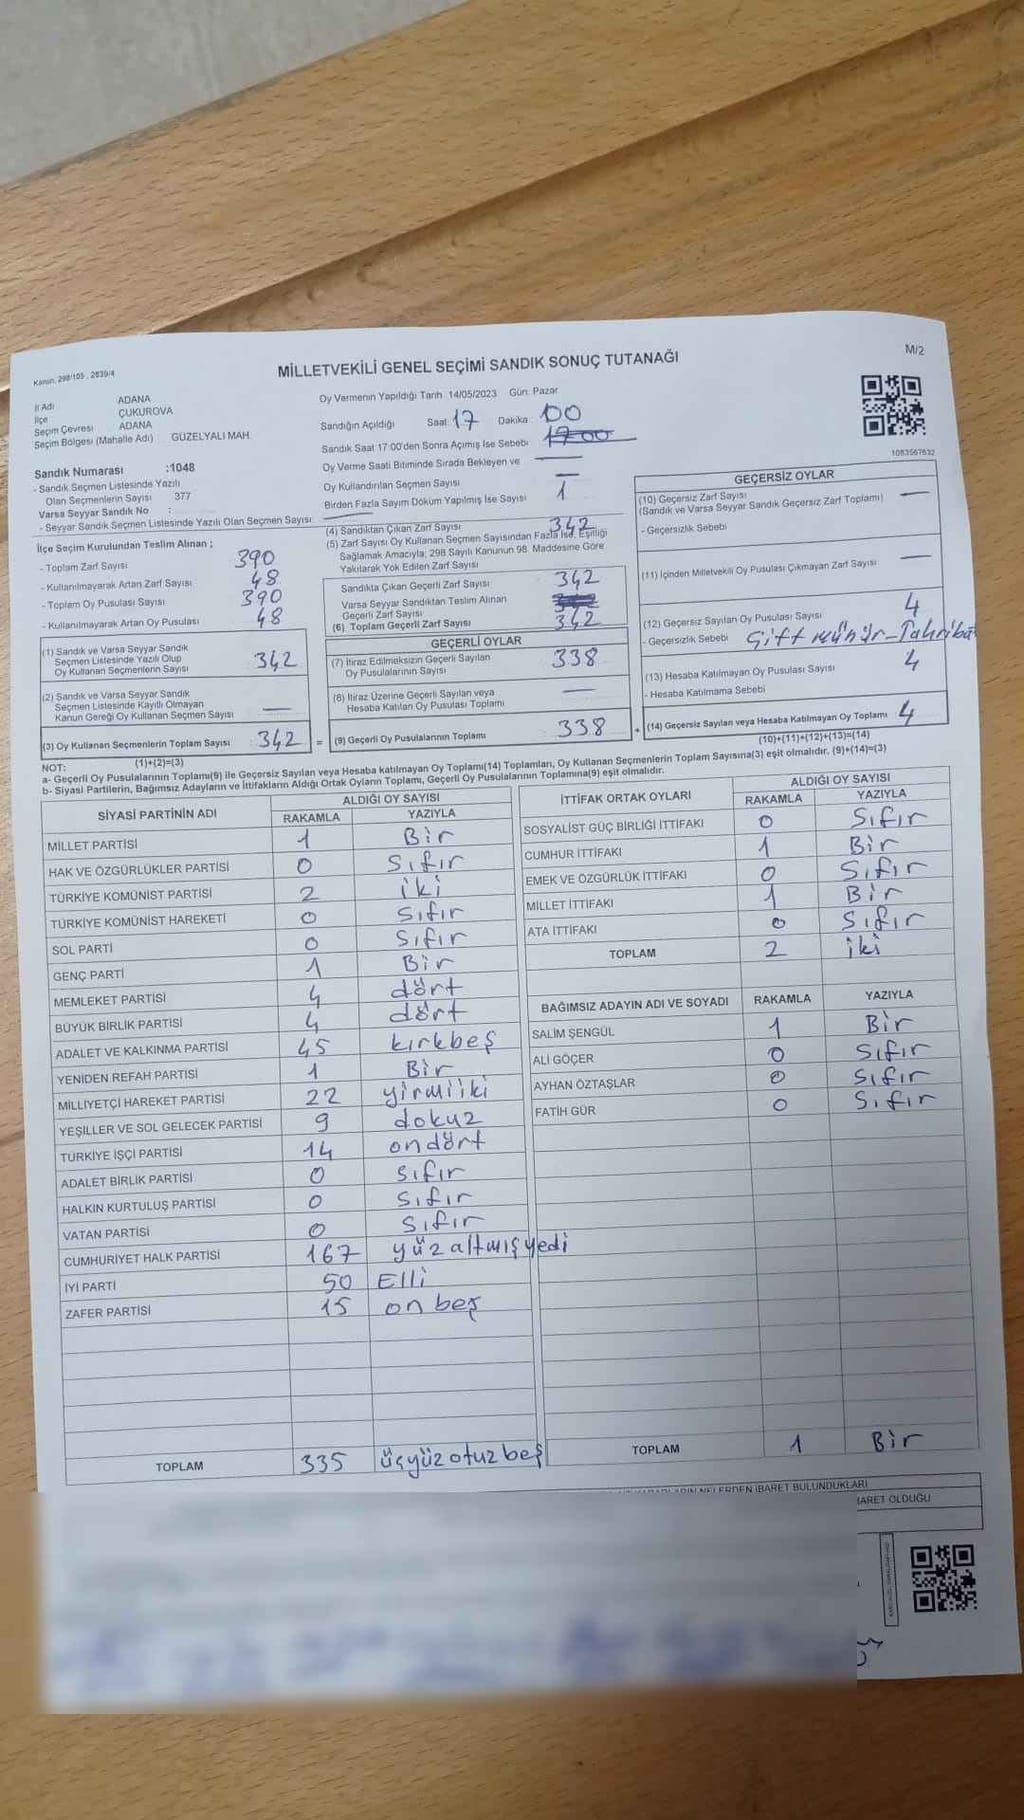 MİLLETVEKİLİ GENEL SEÇİMİ SANDIK SONUÇ TUTANAĞI
M/2
Kanun, 298/105 , 2839/4
İl Adı ADANA
İlçe ÇUKUROVA
Seçim Çevresi ADANA
Seçim Bölgesi (Mahalle Adı) GÜZELYALI MAH.
Sandık Numarası :1048
- Sandık Seçmen Listesinde Yazılı
Olan Seçmenlerin Sayısı 377
Varsa Seyyar Sandık No :
- Seyyar Sandık Seçmen Listesinde Yazılı Olan Seçmen Sayısı
Oy Vermenin Yapıldığı Tarih 14/05/2023 Gün: Pazar
Sandığın Açıldığı Saat: 17 Dakika: 00
Sandık Saat 17:00'den Sonra Açımış İse Sebebi 17 00
Oy Verme Saati Bitiminde Sırada Bekleyen ve —
Oy Kullandırılan Seçmen Sayısı —
Birden Fazla Sayım Döküm Yapılmış İse Sayısı 1
1083567632
İlçe Seçim Kurulundan Teslim Alınan ;
- Toplam Zarf Sayısı 390
- Kullanılmayarak Artan Zarf Sayısı 48
- Toplam Oy Pusulası Sayısı 390
- Kullanılmayarak Artan Oy Pusulası 48
(1) Sandık ve Varsa Seyyar Sandık
Seçmen Listesinde Yazılı Olup
Oy Kullanan Seçmenlerin Sayısı 342
(2) Sandık ve Varsa Seyyar Sandık
Seçmen Listesinde Kayıtlı Olmayan
Kanun Gereği Oy Kullanan Seçmen Sayısı —
(3) Oy Kullanan Seçmenlerin Toplam Sayısı 342 =
(1)+(2)=(3)
(4) Sandıktan Çıkan Zarf Sayısı 342
(5) Zarf Sayısı Oy Kullanan Seçmen Sayısından Fazla İse, Eşitliği
Sağlamak Amacıyla, 298 Sayılı Kanunun 98. Maddesine Göre
Yakılarak Yok Edilen Zarf Sayısı
Sandıkta Çıkan Geçerli Zarf Sayısı 342
Varsa Seyyar Sandıktan Teslim Alınan
Geçerli Zarf Sayısı
(6) Toplam Geçerli Zarf Sayısı 342
GEÇERLİ OYLAR
(7) İtiraz Edilmeksizin Geçerli Sayılan
Oy Pusulalarının Sayısı 338
(8) İtiraz Üzerine Geçerli Sayılan veya
Hesaba Katılan Oy Pusulası Toplamı —
(9) Geçerli Oy Pusulalarının Toplamı 338 +
GEÇERSİZ OYLAR
(10) Geçersiz Zarf Sayısı —
(Sandık ve Varsa Seyyar Sandık Geçersiz Zarf Toplamı)
- Geçersizlik Sebebi
(11) İçinden Milletvekili Oy Pusulası Çıkmayan Zarf Sayısı —
(12) Geçersiz Sayılan Oy Pusulası Sayısı 4
- Geçersizlik Sebebi Çift mühür-Tahribat
(13) Hesaba Katılmayan Oy Pusulası Sayısı 4
- Hesaba Katılmama Sebebi
(14) Geçersiz Sayılan veya Hesaba Katılmayan Oy Toplamı 4
(10)+(11)+(12)+(13)=(14)
NOT:
a- Geçerli Oy Pusulalarının Toplamı(9) ile Geçersiz Sayılan veya Hesaba katılmayan Oy Toplamı(14) Toplamları, Oy Kullanan Seçmenlerin Toplam Sayısına(3) eşit olmalıdır. (9)+(14)=(3)
b- Siyasi Partilerin, Bağımsız Adayların ve İttifakların Aldığı Ortak Oyların Toplamı, Geçerli Oy Pusulalarının Toplamına(9) eşit olmalıdır.
SİYASİ PARTİNİN ADI ALDIĞI OY SAYISI
RAKAMLA YAZIYLA
MİLLET PARTİSİ 1 Bir
HAK VE ÖZGÜRLÜKLER PARTİSİ 0 Sıfır
TÜRKİYE KOMÜNİST PARTİSİ 2 iki
TÜRKİYE KOMÜNİST HAREKETİ 0 Sıfır
SOL PARTİ 0 Sıfır
GENÇ PARTİ 1 Bir
MEMLEKET PARTİSİ 4 dört
BÜYÜK BİRLİK PARTİSİ 4 dört
ADALET VE KALKINMA PARTİSİ 45 kırkbeş
YENİDEN REFAH PARTİSİ 1 Bir
MİLLİYETÇİ HAREKET PARTİSİ 22 yirmiiki
YEŞİLLER VE SOL GELECEK PARTİSİ 9 dokuz
TÜRKİYE İŞÇİ PARTİSİ 14 ondört
ADALET BİRLİK PARTİSİ 0 Sıfır
HALKIN KURTULUŞ PARTİSİ 0 Sıfır
VATAN PARTİSİ 0 Sıfır
CUMHURİYET HALK PARTİSİ 167 yüzaltmışyedi
İYİ PARTİ 50 Elli
ZAFER PARTİSİ 15 onbeş
TOPLAM 335 üçyüzotuzbeş
İTTİFAK ORTAK OYLARI ALDIĞI OY SAYISI
RAKAMLA YAZIYLA
SOSYALİST GÜÇ BİRLİĞİ İTTİFAKI 0 Sıfır
CUMHUR İTTİFAKI 1 Bir
EMEK VE ÖZGÜRLÜK İTTİFAKI 0 Sıfır
MİLLET İTTİFAKI 1 Bir
ATA İTTİFAKI 0 Sıfır
TOPLAM 2 iki
BAĞIMSIZ ADAYIN ADI VE SOYADI RAKAMLA YAZIYLA
SALİM ŞENGÜL 1 Bir
ALİ GÖÇER 0 Sıfır
AYHAN ÖZTAŞLAR 0 Sıfır
FATİH GÜR 0 Sıfır
TOPLAM 1 Bir
NELERDEN İBARET BULUNDUKLARI
İBARET OLDUĞU